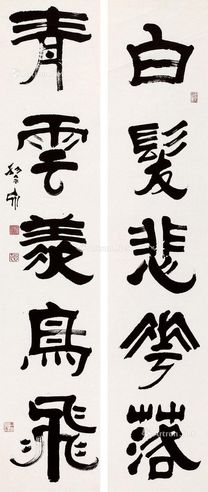 白髮悲花落
青雲羨鳥飛